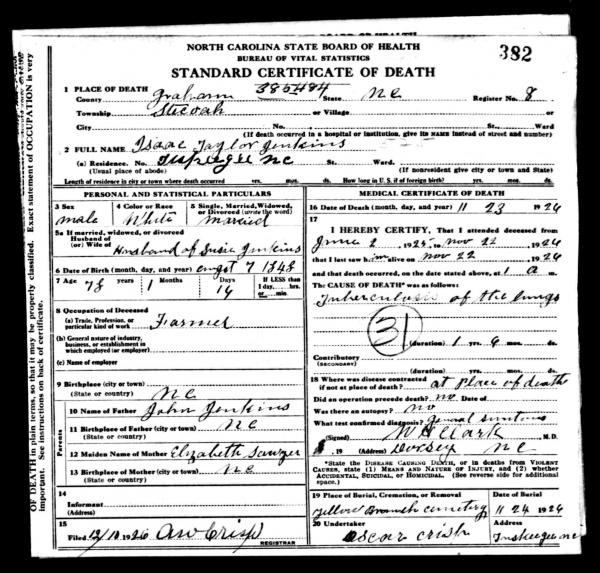 BOARD OF HEALTH
NORTH CAROLINA STATE BOARD OF HEALTH
BUREAU OF VITAL STATISTICS
STANDARD CERTIFICATE OF DEATH
382
1 PLACE OF DEATH
County Graham State NC Register No. 8
Township Stecoah or Village
City No. St. Ward
(If death occurred in a hospital or institution, give its NAME instead of street and number)
2 FULL NAME Isaac Taylor Jenkins
(a) Residence. No. NC St. Ward.
(Usual place of abode) (If nonresident give city or town and State)
Length of residence in city or town where death occurred yrs. mos. ds. How long in U. S. if of foreign birth? yrs. mos. ds.
PERSONAL AND STATISTICAL PARTICULARS
3 Sex 4 Color or Race 5 Single, Married, Widowed, or Divorced (write the word)
male White Married
5a If married, widowed, or divorced
Husband of
(or) Wife of Husband of Susie Jenkins
6 Date of Birth (month, day, and year) 7 1848
7 Age 78 years 1 Months 14 Days If LESS than 1 day, hrs. or min.
8 Occupation of Deceased
(a) Trade, Profession, or particular kind of work Farmer
(b) General nature of industry, business, or establishment in which employed (or employer)
(c) Name of employer
9 Birthplace (city or town)
(State or country) NC
Parents
10 Name of Father John Jenkins
11 Birthplace of Father (city or town) NC
(State or country)
12 Maiden Name of Mother Elizabeth Sawyer
13 Birthplace of Mother (city or town) NC
(State or country)
14
Informant
(Address)
15
Filed 12/10 1926 AW Crisp
REGISTRAR
MEDICAL CERTIFICATE OF DEATH
16 Date of Death (month, day, and year) 11 23 1926
17
I HEREBY CERTIFY, That I attended deceased from
June 2 1925 to Nov 22 1926
that I last saw him alive on Nov 22 1926
and that death occurred, on the date stated above, at 1 a m.
The CAUSE OF DEATH* was as follows:
Tuberculosis of the lungs
31
(duration) 1 yrs. 6 mos. ds.
Contributory
(SECONDARY)
(duration) yrs. mos. ds.
18 Where was disease contracted
if not at place of death? at Place of death
Did an operation precede death? no Date of
Was there an autopsy? no
What test confirmed diagnosis? general
(Signed) WH Clark M. D.
, 19 (Address) Dorsey NC
*State the DISEASE CAUSING DEATH, or in deaths from VIOLENT CAUSES, state (1) MEANS AND NATURE OF INJURY, and (2) whether ACCIDENTAL, SUICIDAL, or HOMICIDAL. (See reverse side for additional space.)
19 Place of Burial, Cremation, or Removal Date of Burial
Yellow Branch cemetery 11 24 1926
20 Undertaker Address
Oscar Crisp Tuskeegee NC
OF DEATH in plain terms, so that it may be properly classified. Exact statement of OCCUPATION is very
important. See instructions on back of certificate.